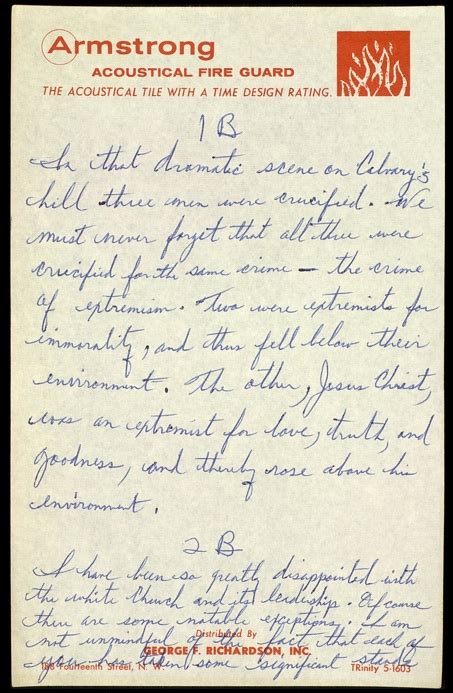 Armstrong
ACOUSTICAL FIRE GUARD
THE ACOUSTICAL TILE WITH A TIME DESIGN RATING.
1 B
In that dramatic scene on Calvary's
hill three men were crucified. We
must never forget that all three were
crucified for the same crime — the crime
of extremism. Two were extremists for
immorality, and thus fell below their
environment. The other, Jesus Christ,
was an extremist for love, truth, and
goodness, and thereby rose above his
environment.
2 B
I have been so greatly disappointed with
the white church and its leadership. Of course
there are some notable exceptions. I am
not unmindful of the fact that each of
Distributed By
GEORGE F. RICHARDSON, INC.
you has taken some significant stands
Fourteenth Street, N. W. TRinity 5-1603